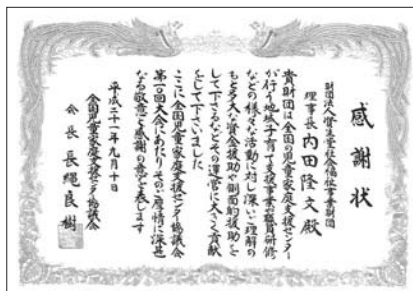 感謝状
財団法人資生堂社会福祉事業財団
理事長 内田隆文殿
貴財団は全国の児童家庭支援センター
が行う地域子育て支援事業や職員研修
などの様々な活動に対し深いご理解の
もと多大な資金援助や側面的援助を
して下さるなどその運営に大きく貢献
をして下さいました
ここに全国児童家庭支援センター協議会
第一回大会にあたりそのご厚情に深甚
なる敬意と感謝の意を表します
平成二十一年九月十日
全国児童家庭支援センター協議会
会長 長縄良樹